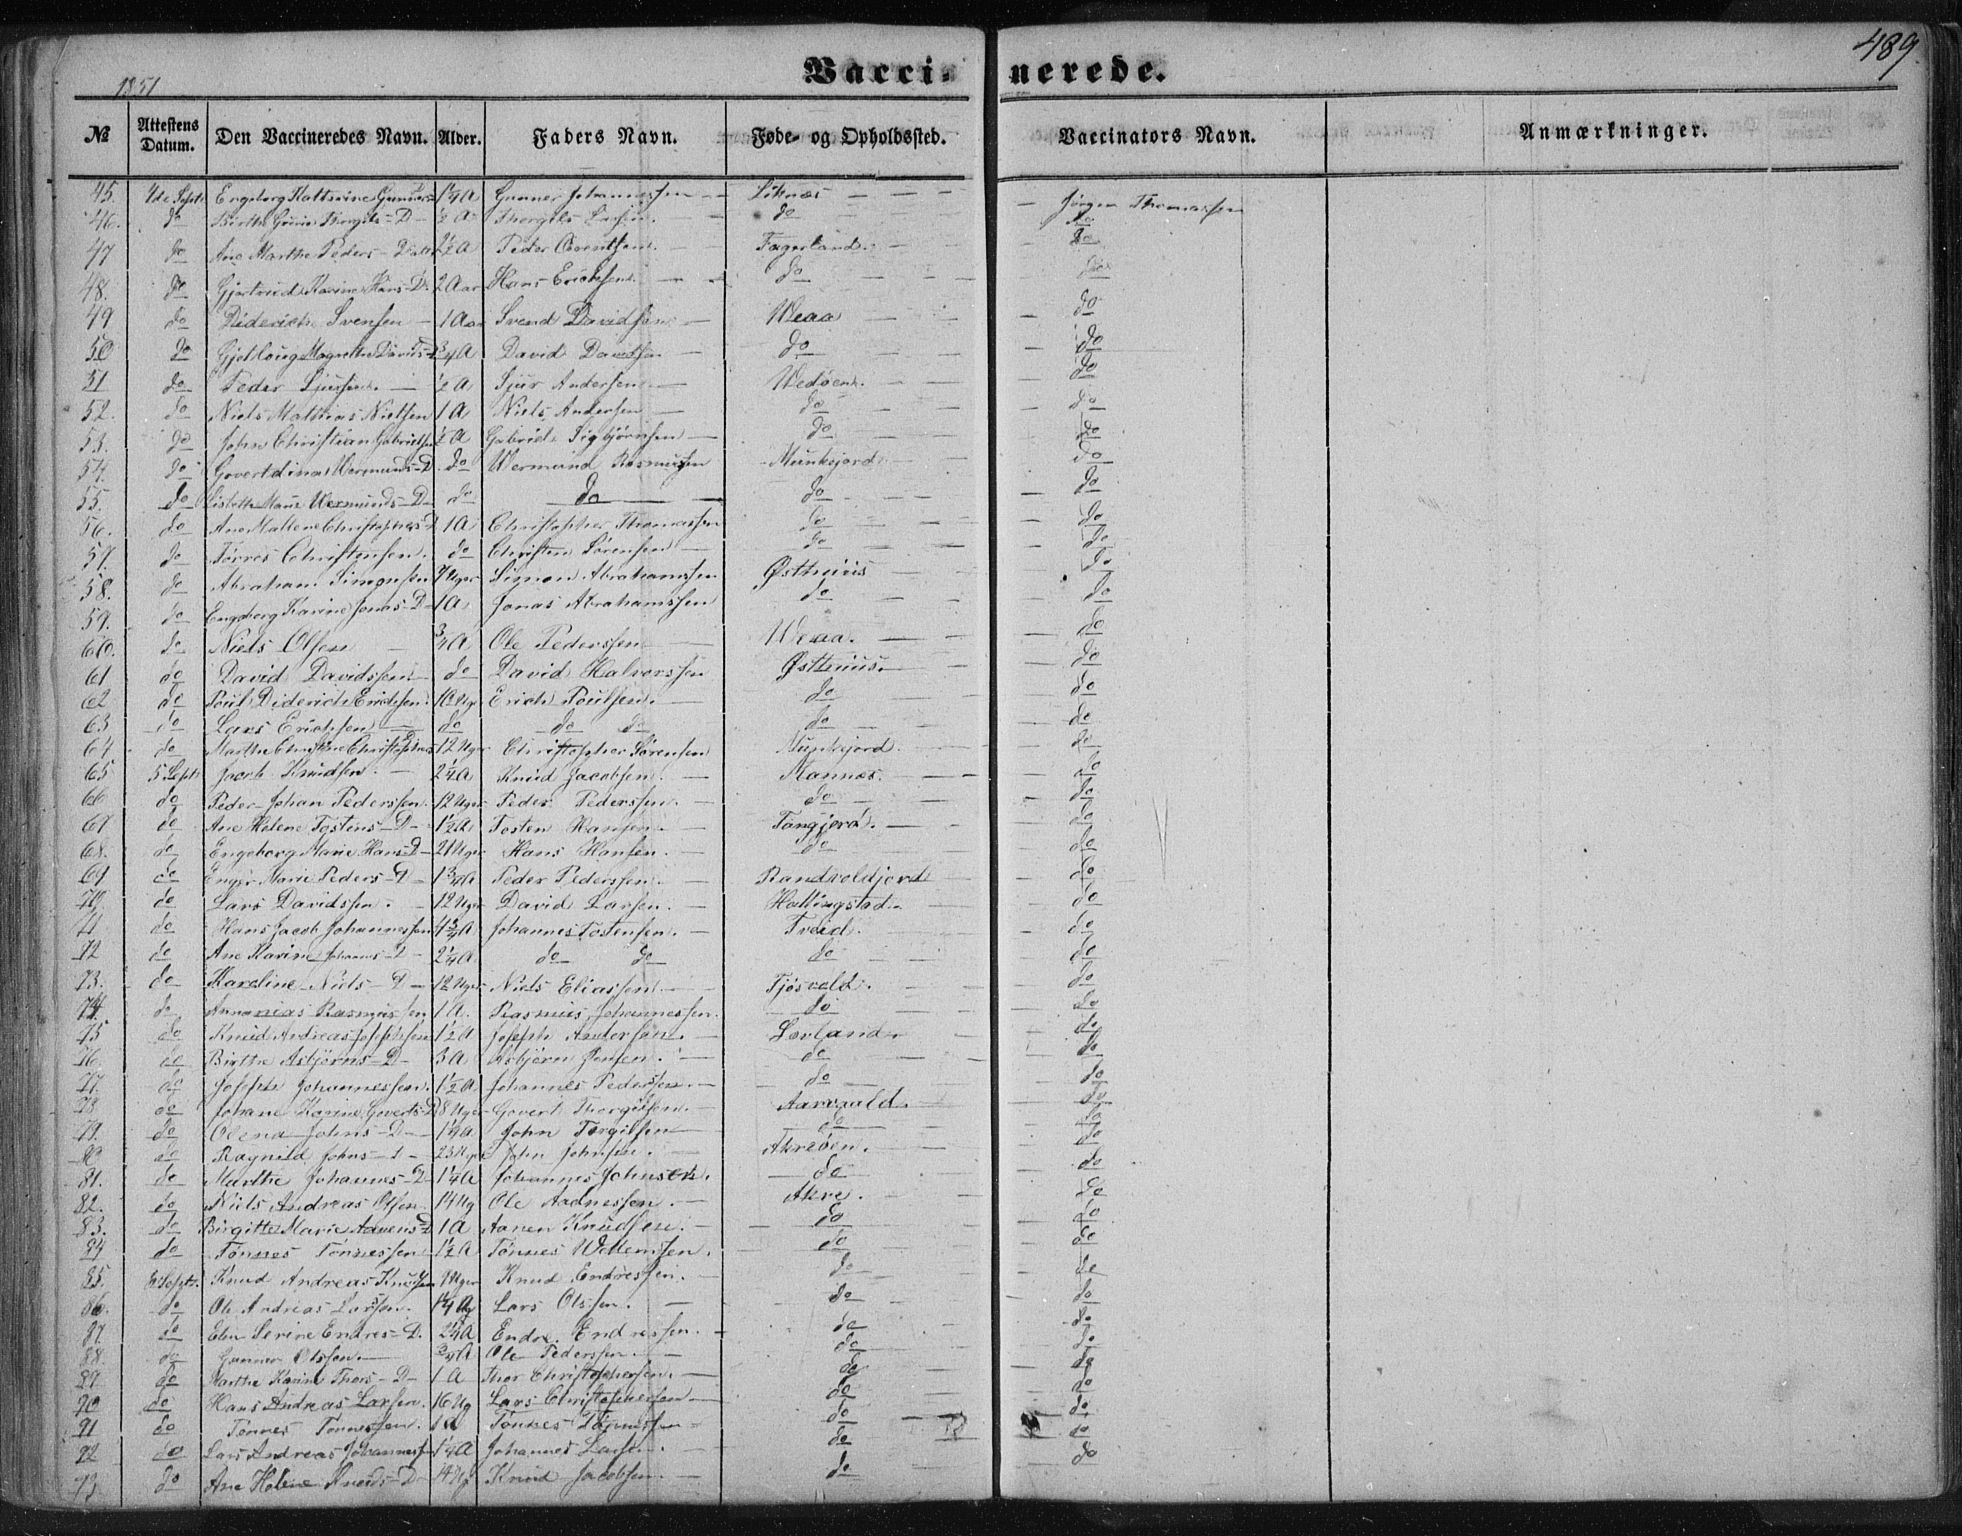 489.
1851
Vaccinerede.
№ Attestens Datum. Den Vaccineredes Navn. Alder. Faders Navn. Føde- og Opholdssted. Vaccinators Navn. Anmærkninger.
45. 4de Septr Engeborg Kattrine Gunners 1¼ A Gunner Johannessen Liknæs Jørgen Thomassen
46. do Thorgils-D ½ A Thorgils Larsen do do
47 do Ane Marthe Peders-Datt 2½ A Peder Fagerland do
48. do Gjertrud Karine Hans-D. 2 Aar Hans Erichsen do do
49 do Diderich Svensen 1 Aar Svend Davidsen Weaa do
50 do Magrethe Davids-D ¾ A David Davidsen do do
51 do Peder Sjursen ½ A Sjur Andersen Wedøen do
52. do Niels Mathias Nielsen 1 A Niels Andersen do do
53. do John Christian Gabrielsen ½ A Gabriel Sigbjørnsen do do
54. do Govertdina Wermunds-D do Wermund Rasmussen Munkejord do
55. do Lisbeth Marie Wermunds-D do do do do
56. do Ane Mallene Christophers-D 1 A Christopher Thomassen do do
57. do Tørres Christensen do Christen Sørensen do do
58. do Abraham Simonsen 7 Uger Simon Abrahamsen Østhuus do
59. do Engeborg Karine Jonas-D 1 A Jonas Abrahamssen do do
60. do Niels Olsen ¾ A Ole Pederssen Weaa. do
61 do David Davidssen do David Halvorssen Østhuus do
62 do Poul Diderich Erichsen. 10 Ugr Erich Poulsen. do do
63 do Lars Erichsen do do do do do
64 do Marthe Christine Christophers 12 Uger Christopher Sørensen Munkejord do
65 5 Septr Jacob Knudsen. 2¼ A Knud Jacobsen. Mannes. do
66 do Peder Johan Pederssen. 12 Uger Peder Pederssen. do do
67 do Ane Helene Tostens-D 1½ A Tosten Hansen Tangjerd. do
68. do Engeborg Marie Hans-D 21 Uger Hans Hansen. do do
69 do Enger Marie Peders-D 1¾ A Peder Pederssen. do
70 do Lars Davidssen. 12 Uger David Larsen. Hollingstad do
71 do Hans Jacob Johannessen 4¾ A Johannes Tostensen. do
72 do Ane Karine Johannes-D 2¼ A do do do do
73. do Karoline Niels-D 12 Uger Niels Eliassen Tjøsvold. do
74. do Annanias Rasmussen 1 A. Rasmus Johannessen. do do
75 do Knud Andreas Josephsen 1½ A Joseph Andersen. do
76. do Birthe Asbjørns-D 3 A Asbjørn Jensen. do do
77. do Joseph Johannessen. 1½ A Johannes Pedersen. do do
78 do Johane Karine Goverts-D 8 Uger Govert Thorgilsen. do
79. do Olena Johns-D 1¼ A John Torgilsen do do
80 do Ragnild Johns-D 23 Ugr John Johnsen. Akreøen. do
81. do Marthe Johannes-D 1¼ A Johannes Johnsen. do do
82. do Niels Andreas Olsen 14 Ug Ole Aadnessen. Akre. do
83. do Birgitte Marie D 1 A Knudsen. do do
84 do Tønnes Tønnessen 1½ A Tønnes Willemsen. do do
85. 6 Septr. Knud Andreas Knudsen Uger Knud Endressen. do do
86. do Ole Andreas Larssen. 1¼ A Lars Olssen. do do
87. do Elen Serine Endres-D. 2¼ A Endre Endressen. do do
88. do Gunner Olssen. ¾ A Ole Pederssen. do do
89. do Marthe Karine Thors-D 1 A Thor Christophersen. do do
90 do Hans Andreas Larsen. 16 Ug Lars Christophersen do do
91 do Tønnes Tønnessen. 1 A Tønnes Tønnessen do do
92 do Lars Andreas Johannessen 1¼ A Johannes Larsen. do do
93. do Ane Helene Knuds-D 14 Ug Knud Jacobsen. do